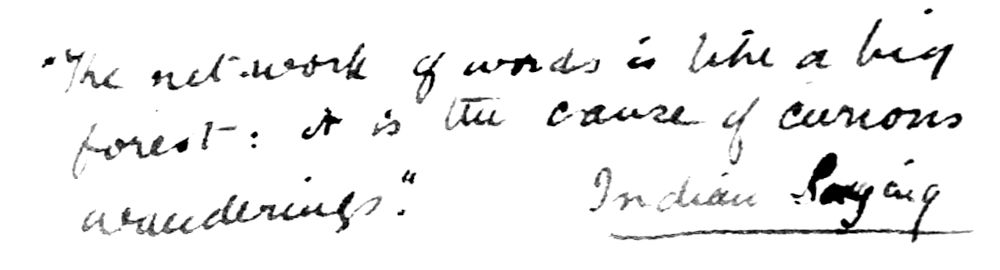 "The net-work of words is like a big
forest: it is the cause of curious
wanderings".
Indian Saying